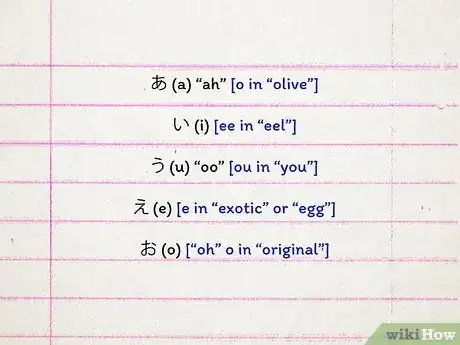 あ (a) “ah” [o in “olive”]
い (i) [ee in “eel”]
う (u) “oo” [ou in “you”]
え (e) [e in “exotic” or “egg”]
お (o) [“oh” o in “original”]
wikiHow